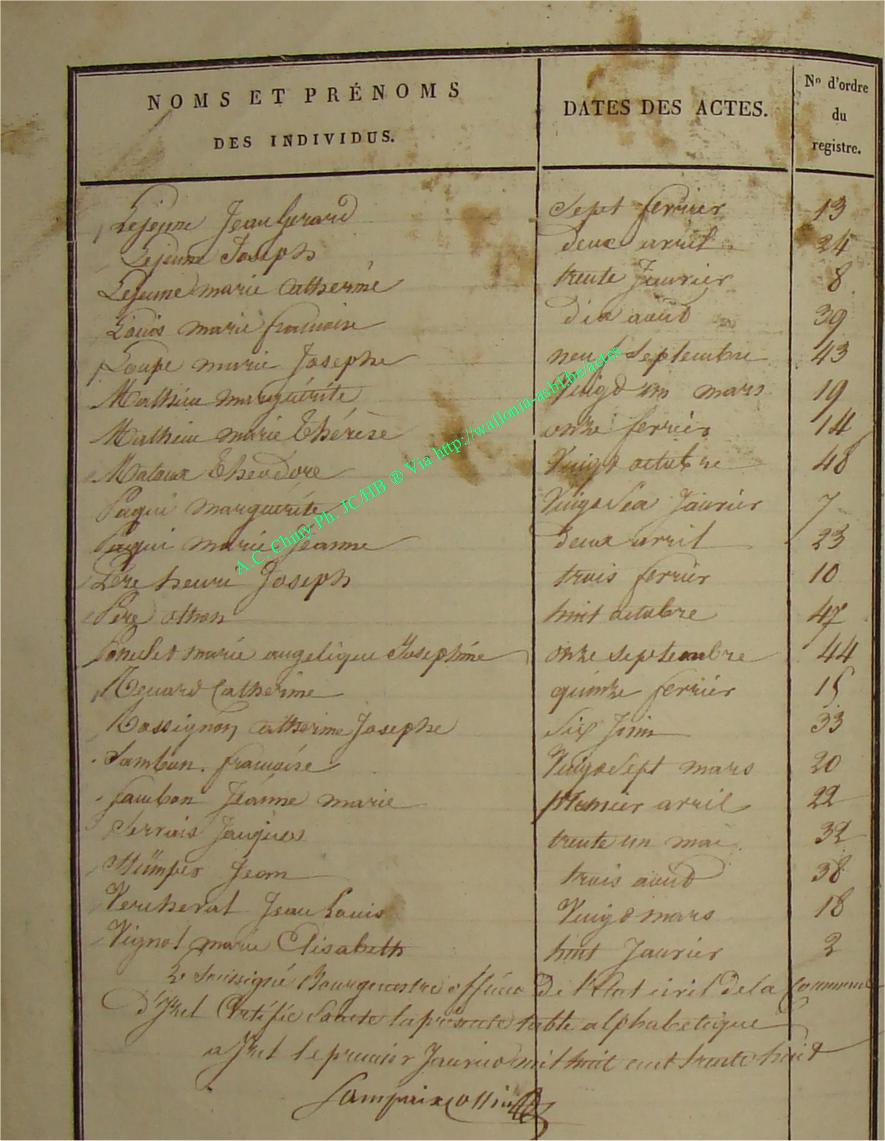 NOMS ET PRÉNOMS DES INDIVIDUS. DATES DES ACTES. Nº d'ordre du registre.
Lejeune Jean Gerard sept fevrier 13
Lejeune Joseph deux avril 24
Lejeune marie Catherine trente Janvier 8
Louis marie francoise dix août 39
Loupe marie Josephe neuf septembre 43
Mathieu marguérite Vingt un mars 19
Mathieu marie Thérèse onze fevrier 14
Mataux Theodore Vingt octobre 48
Paqui marguérite Vingt six Janvier 7
Paqui marie Jeanne deux avril 23
Père heure Joseph trois fevrier 10
Père othon huit octobre 47
marie angelique Josephine onze septembre 44
Renard Catherine quinze fevrier 15
Rossignon Catherine Josephe six Juin 33
Sambon francoise Vingt sept mars 20
Sambon Jeanne marie premier avril 22
Servais Jacques trente un mai 32
Stümper Jean trois août 38
Vercheval Jean Louis Vingt mars 18
Vignol marie Elisabeth huit Janvier 2
Le Soussigné Bourgmestre officier De l'Etat civil de la Commune
D' Certifie la présente table alphabetique
a le premier Janvier mil huit cent trente huit
A.C. Chiny Ph. JCHB @ Via http://wallonia-asbl.be/actes